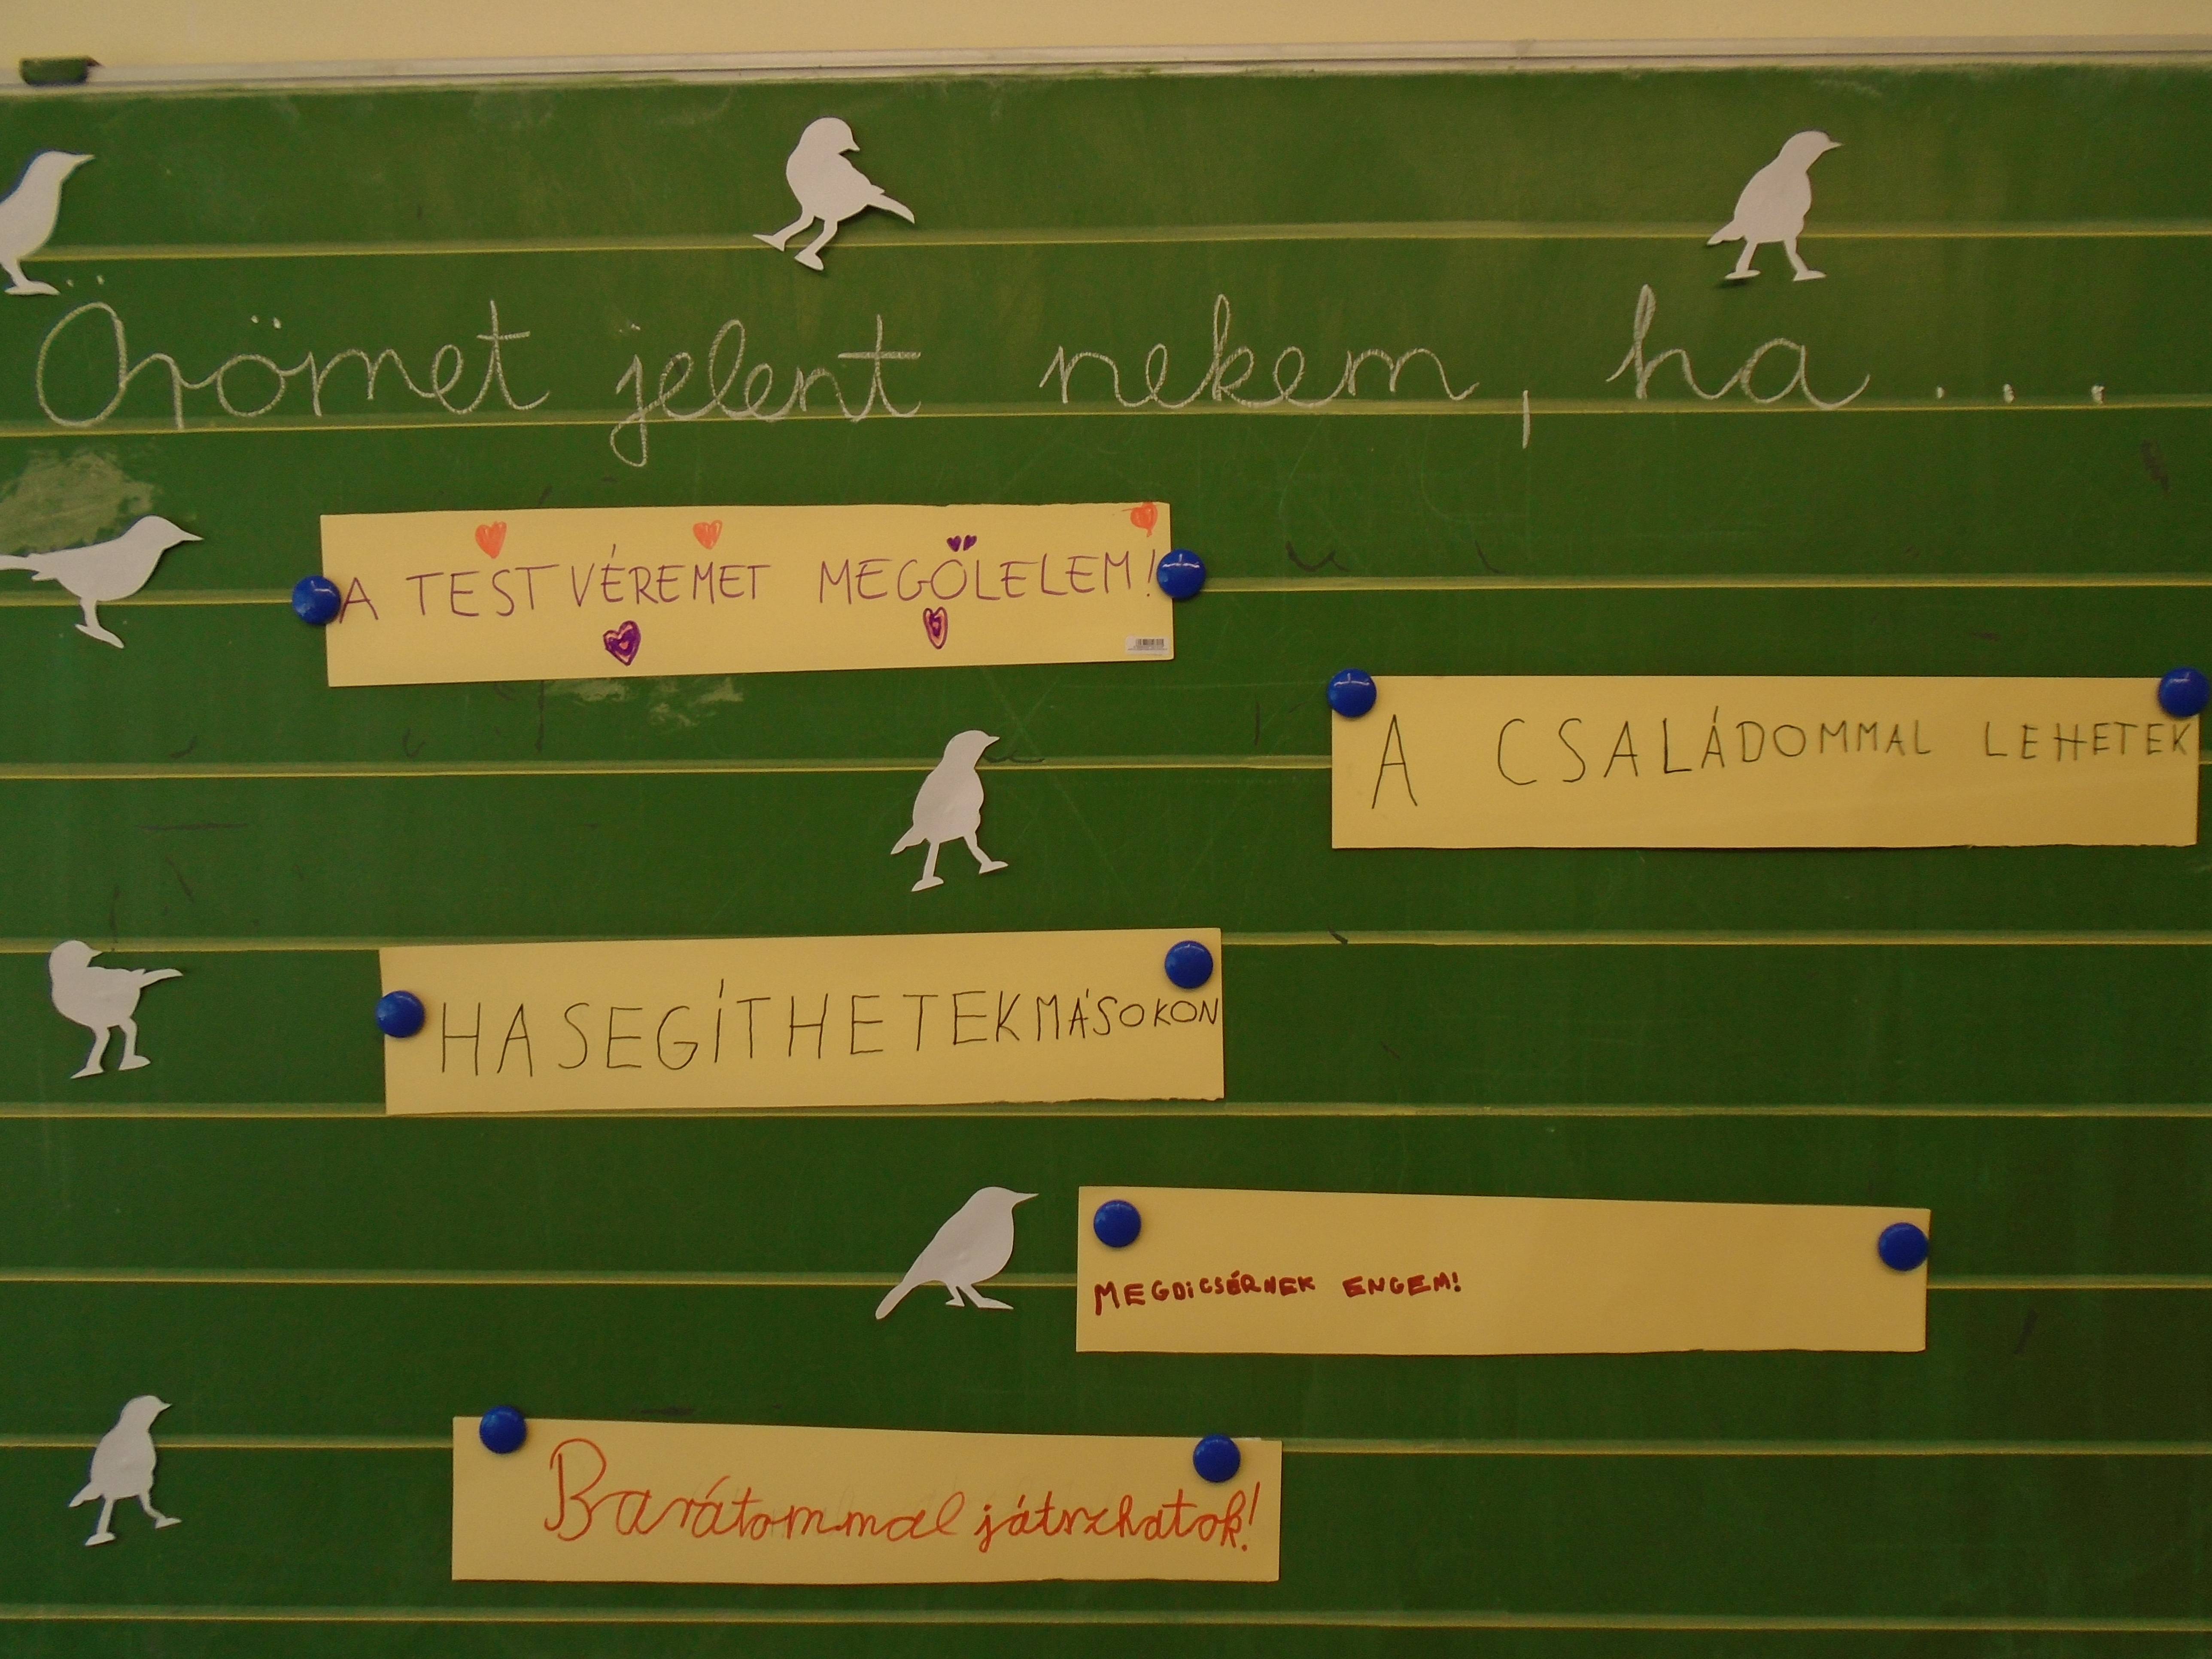 Örömet jelent nekem, ha...
A TESTVÉREMET MEGÖLELEM!
A CSALÁDOMMAL LEHETEK
HASEGÍTHETEKMÁSOKON
MEGDiCSÉRNEK ENGEM!
Barátommal játszhatok!